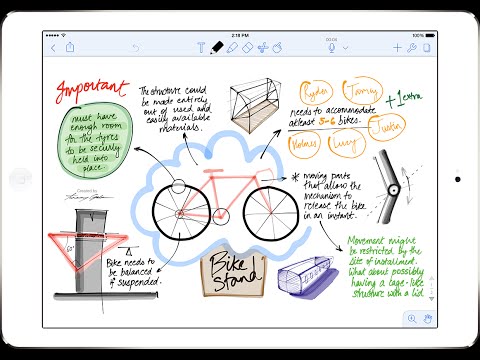 2:18 PM
T
Important
must have
enough room
for the tyres
to be securly
held into
place.
The structure could
be made entirely
out of used and
easily available
materials.
Ryder
Jamy
+ 1 extra
needs to accommodate
atleast 5-6 bikes.
Holmes
Lucy
Justin
* moving parts
that allow the
mechanism to
release the bike
in an instant.
Created by
60°
Bike needs to
be balanced
if suspended.
Bike
Stand
Movement might
be restricted by the
site of installment.
What about possibly
having a cage-like
structure with a lid